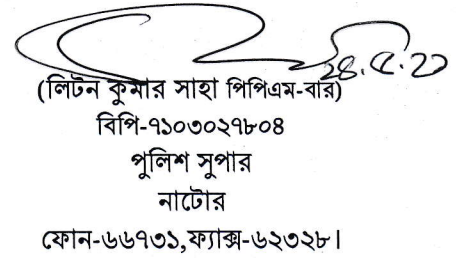 ২৪.৫.২১
(লিটন কুমার সাহা পিপিএম-বার)
বিপি-৭১০৩০২৭৮০৪
পুলিশ সুপার
নাটোর
ফোন-৬৬৭৩১,ফ্যাক্স-৬২৩২৮।